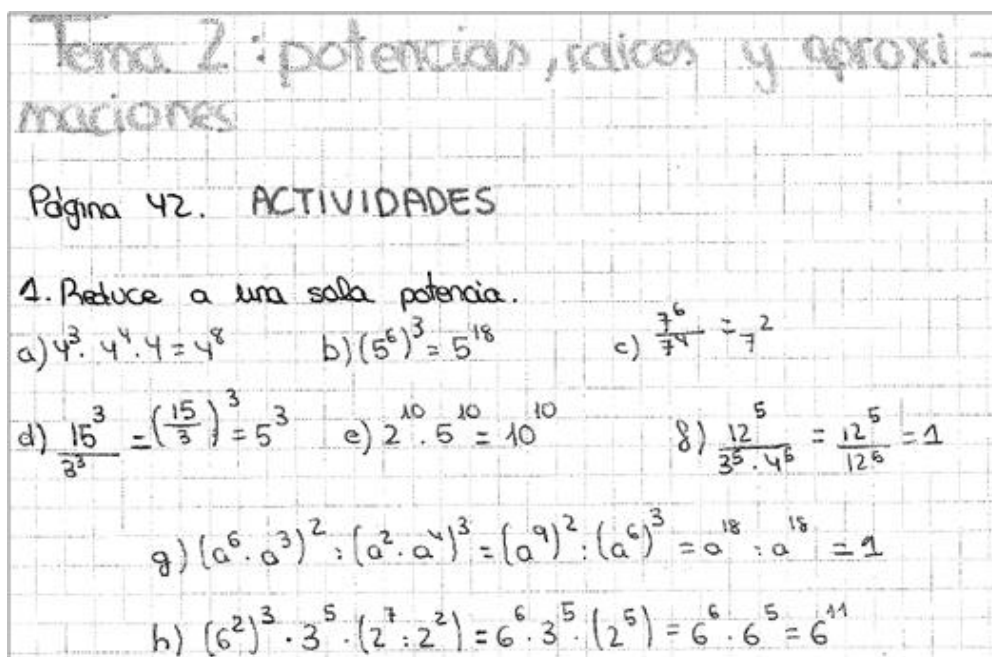 Tema 2: potencias, raices y aproxi-
maciones
Página 42. ACTIVIDADES
1. Reduce a una sola potencia.
a) 4³ · 4⁴ · 4 = 4⁸ b) (5⁶)³ = 5¹⁸ c) 7⁶/7⁴ = 7²
d) 15³/3³ = (15/3)³ = 5³ e) 2¹⁰ · 5¹⁰ = 10¹⁰ f) 12⁵/(3⁵ · 4⁵) = 12⁵/12⁵ = 1
g) (a⁶ · a³)² : (a² · a⁴)³ = (a⁹)² : (a⁶)³ = a¹⁸ : a¹⁸ = 1
h) (6²)³ · 3⁵ · (2⁷ : 2²) = 6⁶ · 3⁵ · (2⁵) = 6⁶ · 6⁵ = 6¹¹